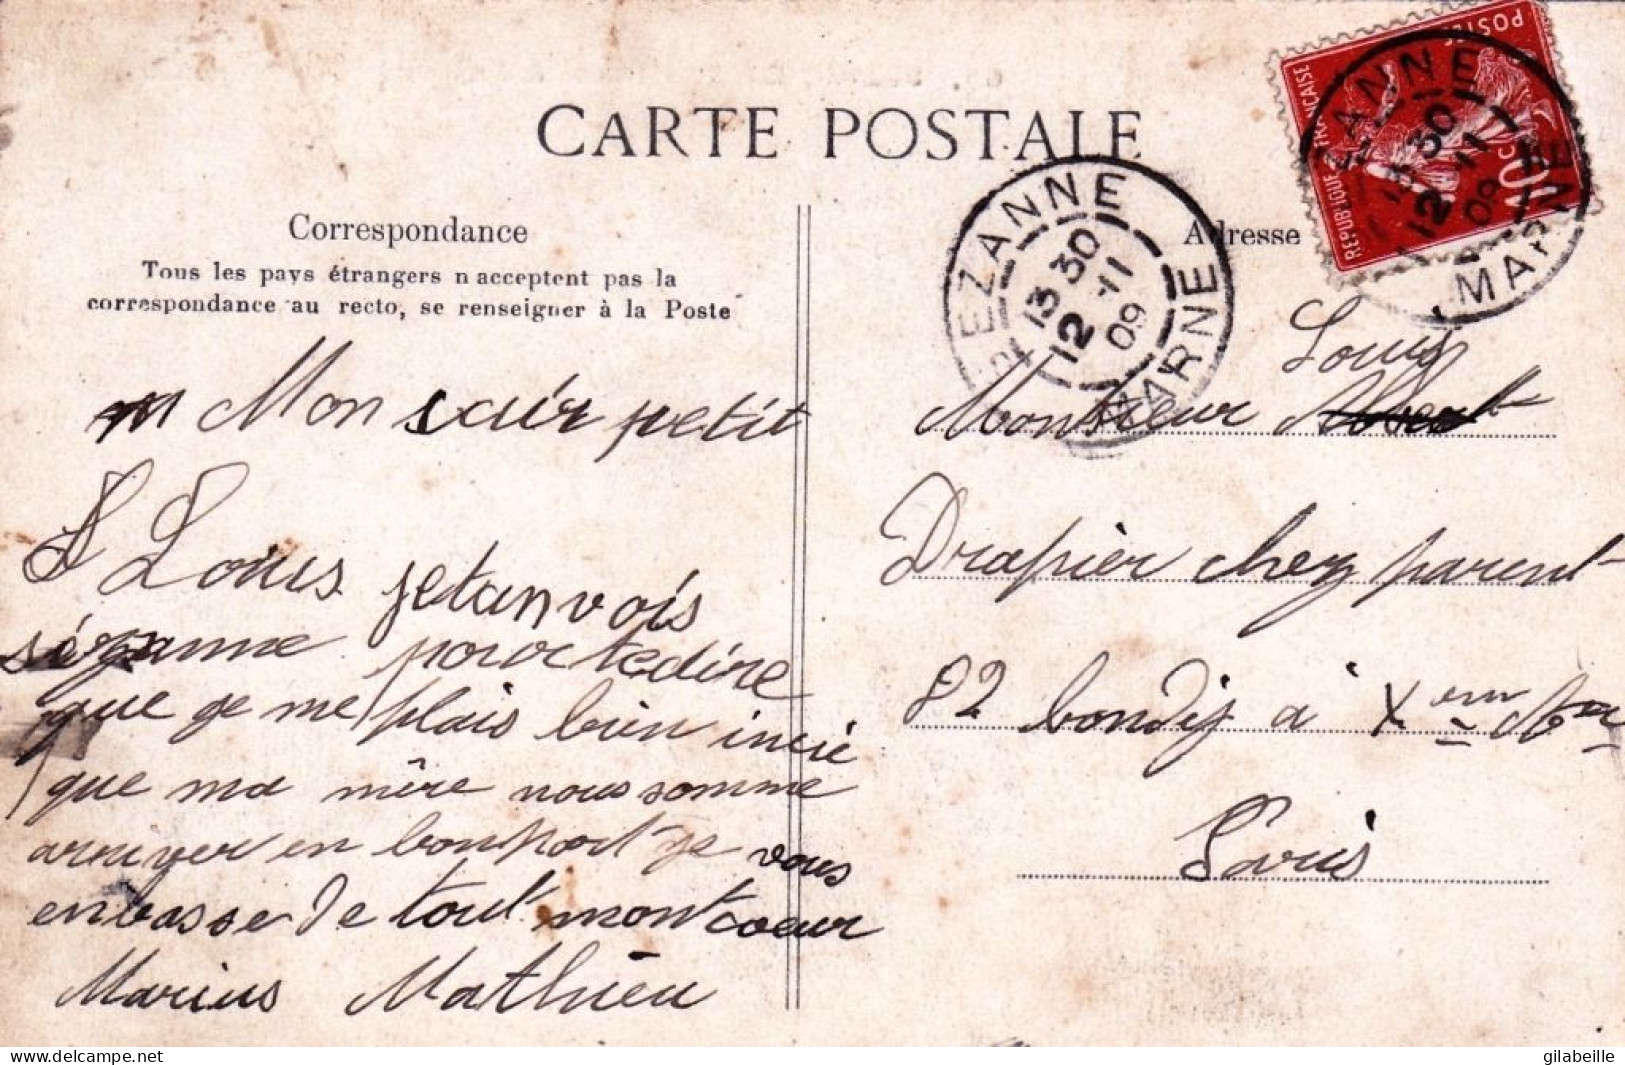 CARTE POSTALE
Correspondance
Tous les pays étrangers n acceptent pas la
correspondance au recto, se renseigner à la Poste
Mon cair petit
Louis je tanvois
sézanne pour te dire
que ge me plais bien
que ma mêre nous somme
en bonport je vous
enbasse de tout mont coeur
Marius Mathieu
REPUBLIQUE FRANÇAISE
POSTES
10 c
SEZANNE
13 30
12 -11
09
MARNE
SEZANNE
13 30
12 -11
09
MARNE
Adresse
Louis
Monsieur Albert
Drapier chez parent
82 bondy à Xem
Paris
delcampe.net
gilabeille